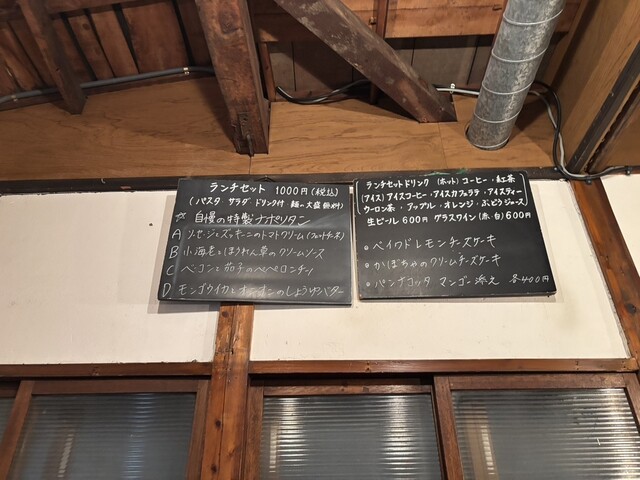 ランチセット 1000円(税込)
(パスタ サラダ ドリンク付 麺の大盛
☆ 自慢の特製ナポリタン
A ソーセージとズッキーニのトマトクリーム(フェットチーネ)
B 小海老とほうれん草のクリームソース
C ベーコンと茄子のペペロンチーノ
D モンゴウイカとオニオンのしょうゆバター
ランチセットドリンク (ホット) コーヒー・紅茶
(アイス) アイスコーヒー・アイスカフェラテ・アイスティー
ウーロン茶・アップル・オレンジ・ぶどうジュース)
生ビール600円 グラスワイン(赤・白)600円
ベイクドレモンチーズケーキ
かぼちゃのクリームチーズケーキ
パンナコッタ マンゴー添え 各400円